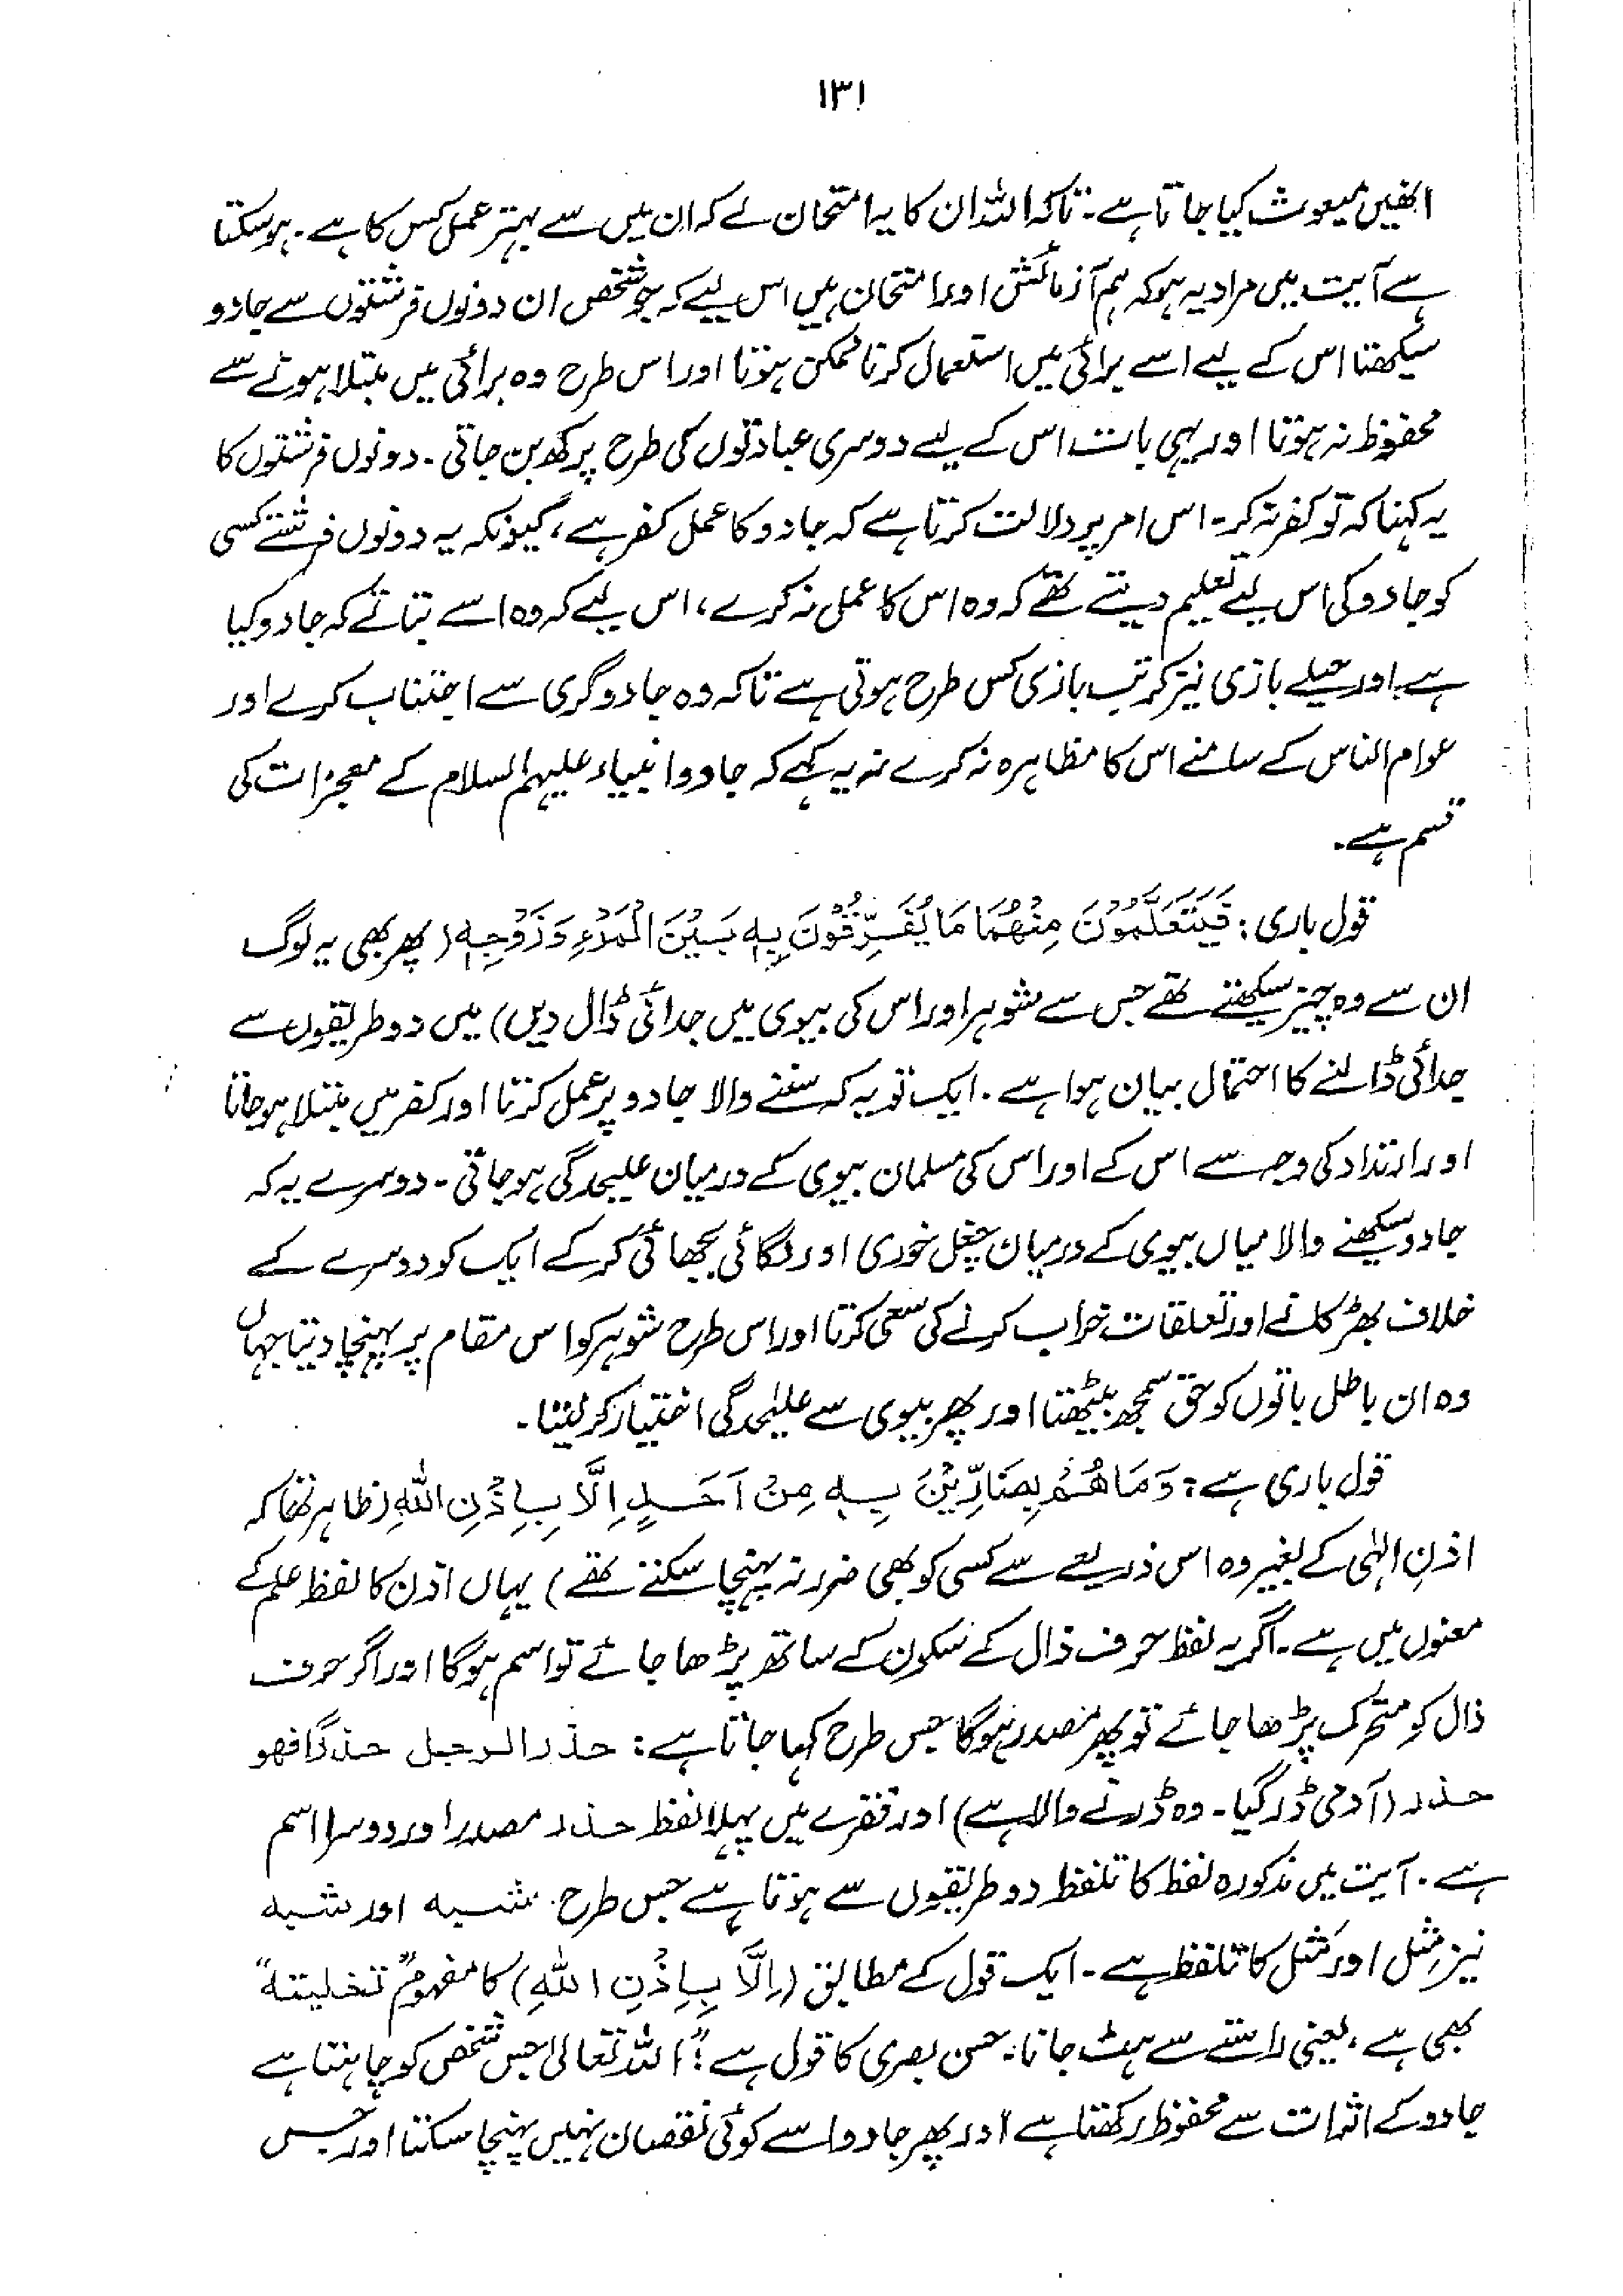 ۱۳۱
انھیں مبعوث کیا جاتا ہے۔ تاکہ اللہ ان کا یہ امتحان لے کہ ان میں سے بہتر عمل کس کا ہے۔ ہو سکتا
ہے آیت میں مراد یہ ہو کہ ہم آزمائش اور امتحان ہیں اس لیے کہ جو شخص ان دونوں فرشتوں سے جادو
سیکھتا اس کے لیے اسے برائی میں استعمال کرنا ممکن ہوتا اور اس طرح وہ برائی میں مبتلا ہونے سے
محفوظ نہ ہوتا اور یہی بات اس کے لیے دوسری عبادتوں کی طرح پرکھ بن جاتی۔ دونوں فرشتوں کا
یہ کہنا کہ تو کفر نہ کر۔ اس امر پر دلالت کرتا ہے کہ جادو کا عمل کفر ہے، کیونکہ یہ دونوں فرشتے کسی
کو جادو کی اس لیے تعلیم دیتے تھے کہ وہ اس کا عمل نہ کرے، اس لیے کہ وہ اسے بتاتے کہ جادو کیا
ہے اور حیلے بازی نیز کرتب بازی کس طرح ہوتی ہے تاکہ وہ جادوگری سے اجتناب کرے اور
عوام الناس کے سامنے اس کا مظاہرہ نہ کرے نہ یہ کہے کہ جادو انبیاء علیہم السلام کے معجزات کی
قسم ہے۔
قول باری: فَیَتَعَلَّمُوْنَ مِنْهُمَا مَا یُفَرِّقُوْنَ بِهٖ بَیْنَ الْمَرْءِ وَزَوْجِهٖ (پھر بھی یہ لوگ
ان سے وہ چیز سیکھتے تھے جس سے شوہر اور اس کی بیوی میں جدائی ڈال دیں) میں دو طریقوں سے
جدائی ڈالنے کا احتمال بیان ہوا ہے۔ ایک تو یہ کہ سننے والا جادو پر عمل کرتا اور کفر میں مبتلا ہو جاتا
اور ارتداد کی وجہ سے اس کے اور اس کی مسلمان بیوی کے درمیان علیحدگی ہو جاتی۔ دوسرے یہ کہ
جادو سیکھنے والا میاں بیوی کے درمیان چغل خوری اور لگائی بجھائی کر کے ایک کو دوسرے کے
خلاف بھڑکاتے اور تعلقات خراب کرنے کی سعی کرتا اور اس طرح شوہر کو اس مقام پر پہنچا دیتا جہاں
وہ ان باطل باتوں کو حق سمجھ بیٹھتا اور پھر بیوی سے علیٰحدگی اختیار کر لیتا۔
قول باری ہے: وَمَا هُمْ بِضَارِّیْنَ بِهٖ مِنْ اَحَدٍ اِلَّا بِاِذْنِ اللّٰهِ (ظاہر تھا کہ
اذنِ الٰہی کے بغیر وہ اس ذریعے سے کسی کو بھی ضرر نہ پہنچا سکتے تھے) یہاں اذن کا لفظ علم کے
معنوں میں ہے۔ اگر یہ لفظ حرف ذال کے سکون کے ساتھ پڑھا جائے تو اسم ہوگا اور اگر حرف
ذال کو متحرک پڑھا جائے تو پھر مصدر ہوگا جس طرح کہا جاتا ہے: حذر الرجل حذرًا فھو
حذر (آدمی ڈر گیا۔ وہ ڈرنے والا ہے) اور فقرے میں پہلا لفظ حذر مصدر اور دوسرا اسم
ہے۔ آیت میں مذکورہ لفظ کا تلفظ دو طریقوں سے ہوتا ہے جس طرح شبہ اور شبہ
نیز مِثل اور مَثل کا تلفظ ہے۔ ایک قول کے مطابق (اِلَّا بِاِذْنِ اللّٰهِ) کا مفہوم "تخلیتہ"
بھی ہے، یعنی راستے سے ہٹ جانا۔ حسن بصری کا قول ہے: "اللہ تعالیٰ جس شخص کو چاہتا ہے
جادو کے اثرات سے محفوظ رکھتا ہے اور پھر جادو اسے کوئی نقصان نہیں پہنچا سکتا اور جس